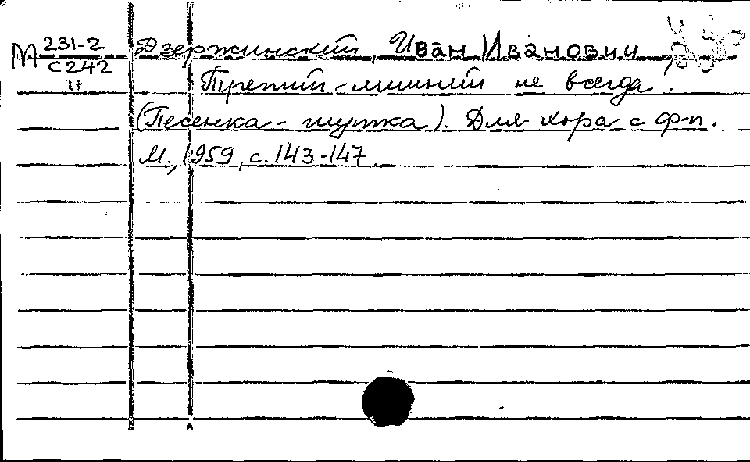 М 231-2 Дзержинский, Иван Иванович
С242 Третий-лишний не всегда.
II (Песенка-шутка). Для хора с ф-п.
М., 1959, с. 143-147.